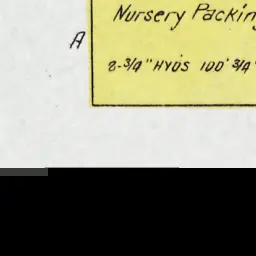 Nursery Packin
A
2-3/4" HYDS 100' 3/4"